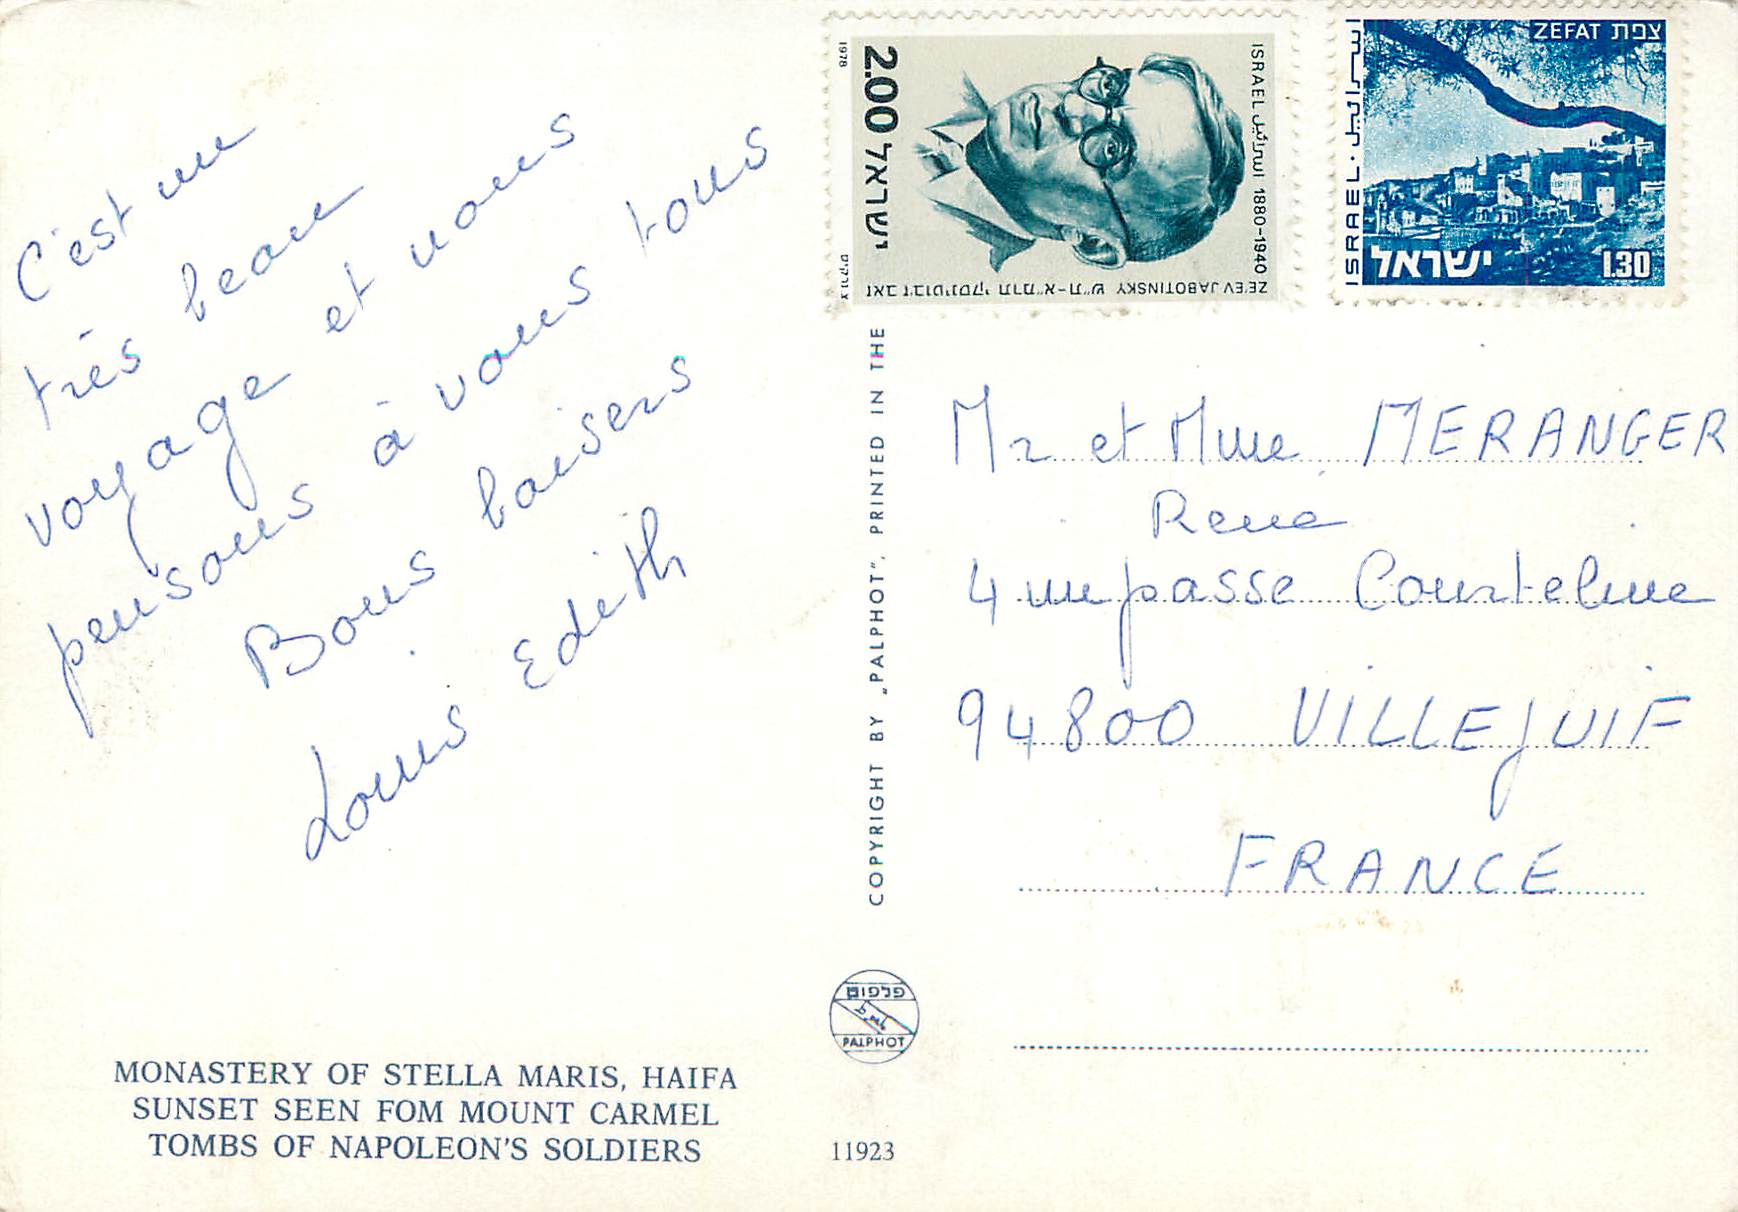 C'est un
très beau
voyage et nous
pensons à vous tous
Bons baisers
Louis Edith
MONASTERY OF STELLA MARIS, HAIFA
SUNSET SEEN FOM MOUNT CARMEL
TOMBS OF NAPOLEON'S SOLDIERS
COPYRIGHT BY „PALPHOT", PRINTED IN THE
פלפוט
PALPHOT
11923
1978
2.00 ישראל
ISRAEL اسرائيل 1880-1940
ZE'EV JABOTINSKY זאב ז'בוטינסקי תרמ"א-ת"ש
צפת ZEFAT
ISRAEL · اسرائيل
ישראל
1.30
Mr et Mme MERANGER
René
4 impasse Courteline
94800 VILLEJUIF
FRANCE